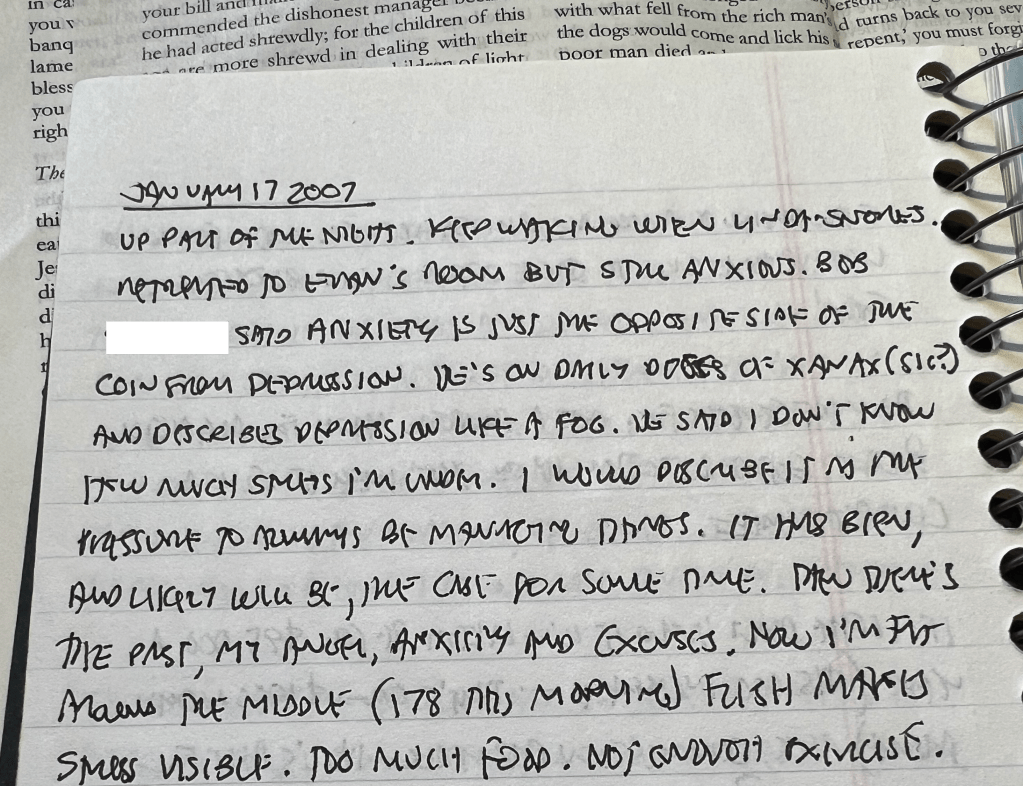 in ca
you v
banq
lame
bless
you
righ
The
thi
ea
Je
di
d
h
your bill and
commended the dishonest manager
he had acted shrewdly; for the children of this
are more shrewd in dealing with their
of light
with what fell from the rich man's
the dogs would come and lick his
poor man died
turns back to you sev
repent,' you must forgi
JANUARY 17 2007
UP PART OF THE NIGHT. KEEP WAKING WHEN LINDA SNORES.
RETREATED TO EVAN'S ROOM BUT STILL ANXIOUS. BOB
SAID ANXIETY IS JUST THE OPPOSITE SIDE OF THE
COIN FROM DEPRESSION. HE'S ON DAILY DOSES OF XANAX (SIC?)
AND DESCRIBES DEPRESSION LIKE A FOG. HE SAID I DON'T KNOW
HOW MUCH STRESS I'M UNDER. I WOULD DESCRIBE IT AS THE
PRESSURE TO ALWAYS BE MANAGING THINGS. IT HAS BEEN,
AND LIKELY WILL BE, THE CASE FOR SOME TIME. THEN THERE'S
THE PAST, MY ANGER, ANXIETY AND EXCUSES. NOW I'M FAT
AROUND THE MIDDLE (178 THIS MORNING) FLESH MAKES
STRESS VISIBLE. TOO MUCH FOOD. NOT ENOUGH EXERCISE.